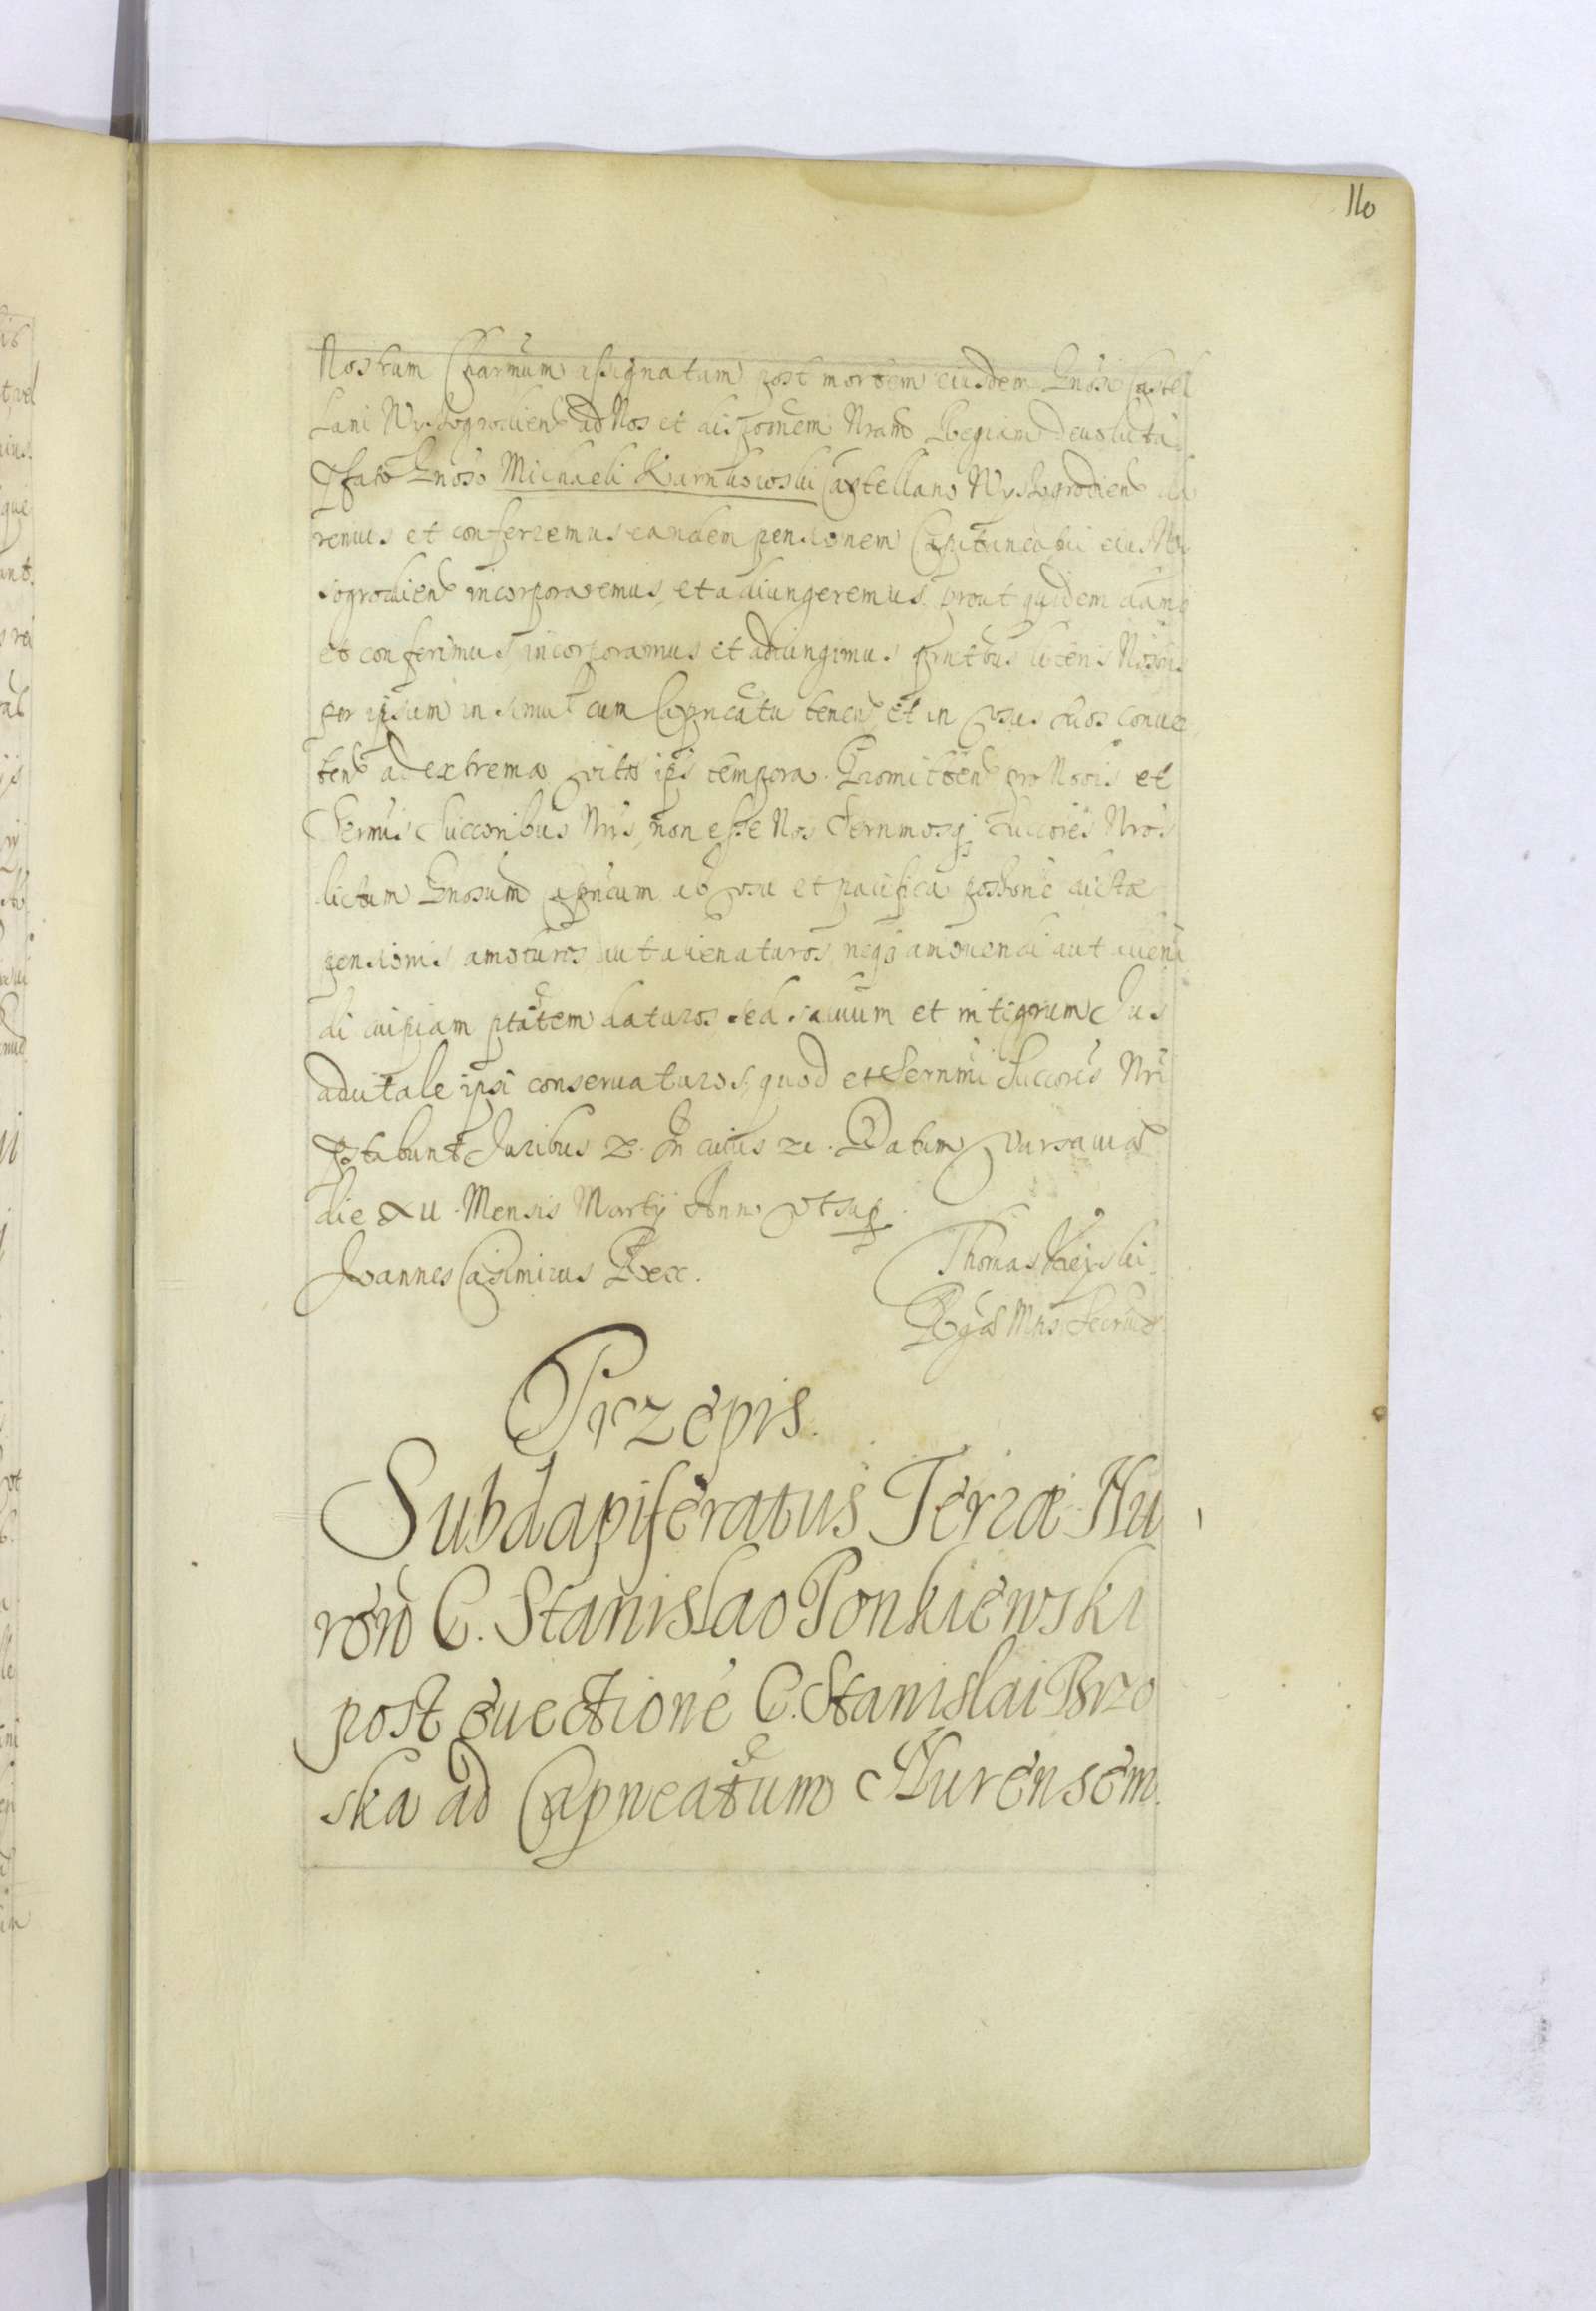 110
Nostrum Charmum assignatam post mortem eiusdem Gnosi Castel
lani Wyssogrodien ad Nos et dispoonem Nram Regiam deuoluta
Pfato Gnoso Michaeli Karnkowski Castellano Wyssogrodien da
remus et conferremus eandem pensionem Capitaneatui eius Wys
sogrodien incorporaremus, et adiungeremus prout quidem damus
et conferimus incorporamus et adiungimus pntbus literis Nostris
per ipsum in simul cum Capneatu tenen et in usus suos conuer
ten ad extrema vitae ipsius tempora. Promitten pro Nobis et
Sermis Succoribus Nris, non esse Nos Sernmosq Succores Nros
dictum Gnosum Capneum ab usu et pacifica possone dictae
pensionis amoturos aut alienaturos, neq amouendi aut aliena
di cuipiam ptatem daturos sed saluum et integrum Jus
aduitale ipsi conseruaturos, quod et Sernmi Succores Nri
pstabunt Juribus &. In cuius rei. Datum Varsauiae
die XII Mensis Martij Anno vt sup
Joannes Casimirus Rex.
Thomas
Rgae Mtis Secrius
Przepis.
Subdapiferatus Terrae Nu
ren G. Stanislao Ponkiewski
post euectione G. Stanislai Brzo
ska ad Capneatum Nurensem.